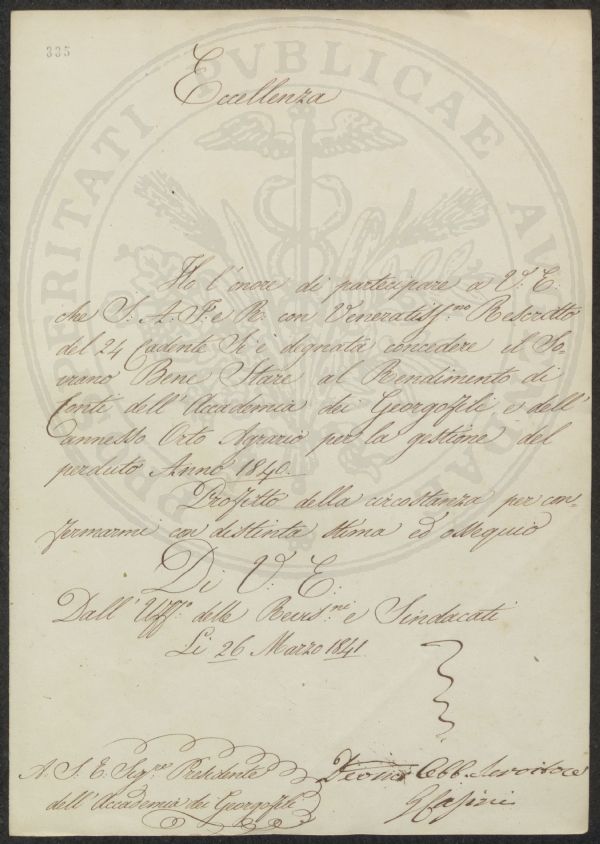 335
PROSPERITATI PVBLICAE AVGENDA
Eccellenza
Ho l'onore di partecipare a V. E.
che S: A. I: e R: con Veneratiss.mo Rescritto
del 24 Cadente Si è degnata concedere il So-
vrano Bene Stare al Rendimento di
Conti dell'Accademia dei Georgofili, e dell'
annesso Orto Agrario per la gestione del
perduto Anno 1840.
Profitto della circostanza per con-
fermarmi con distinta stima ed ossequio
Di V: E:
Dall'Uff.o delle Revis.ni e Sindacati
Li 26 Marzo 1841.
A. S. E. Sig.re Presidente
dell'Accademia dei Georgofili
Devino Obb. Servitore